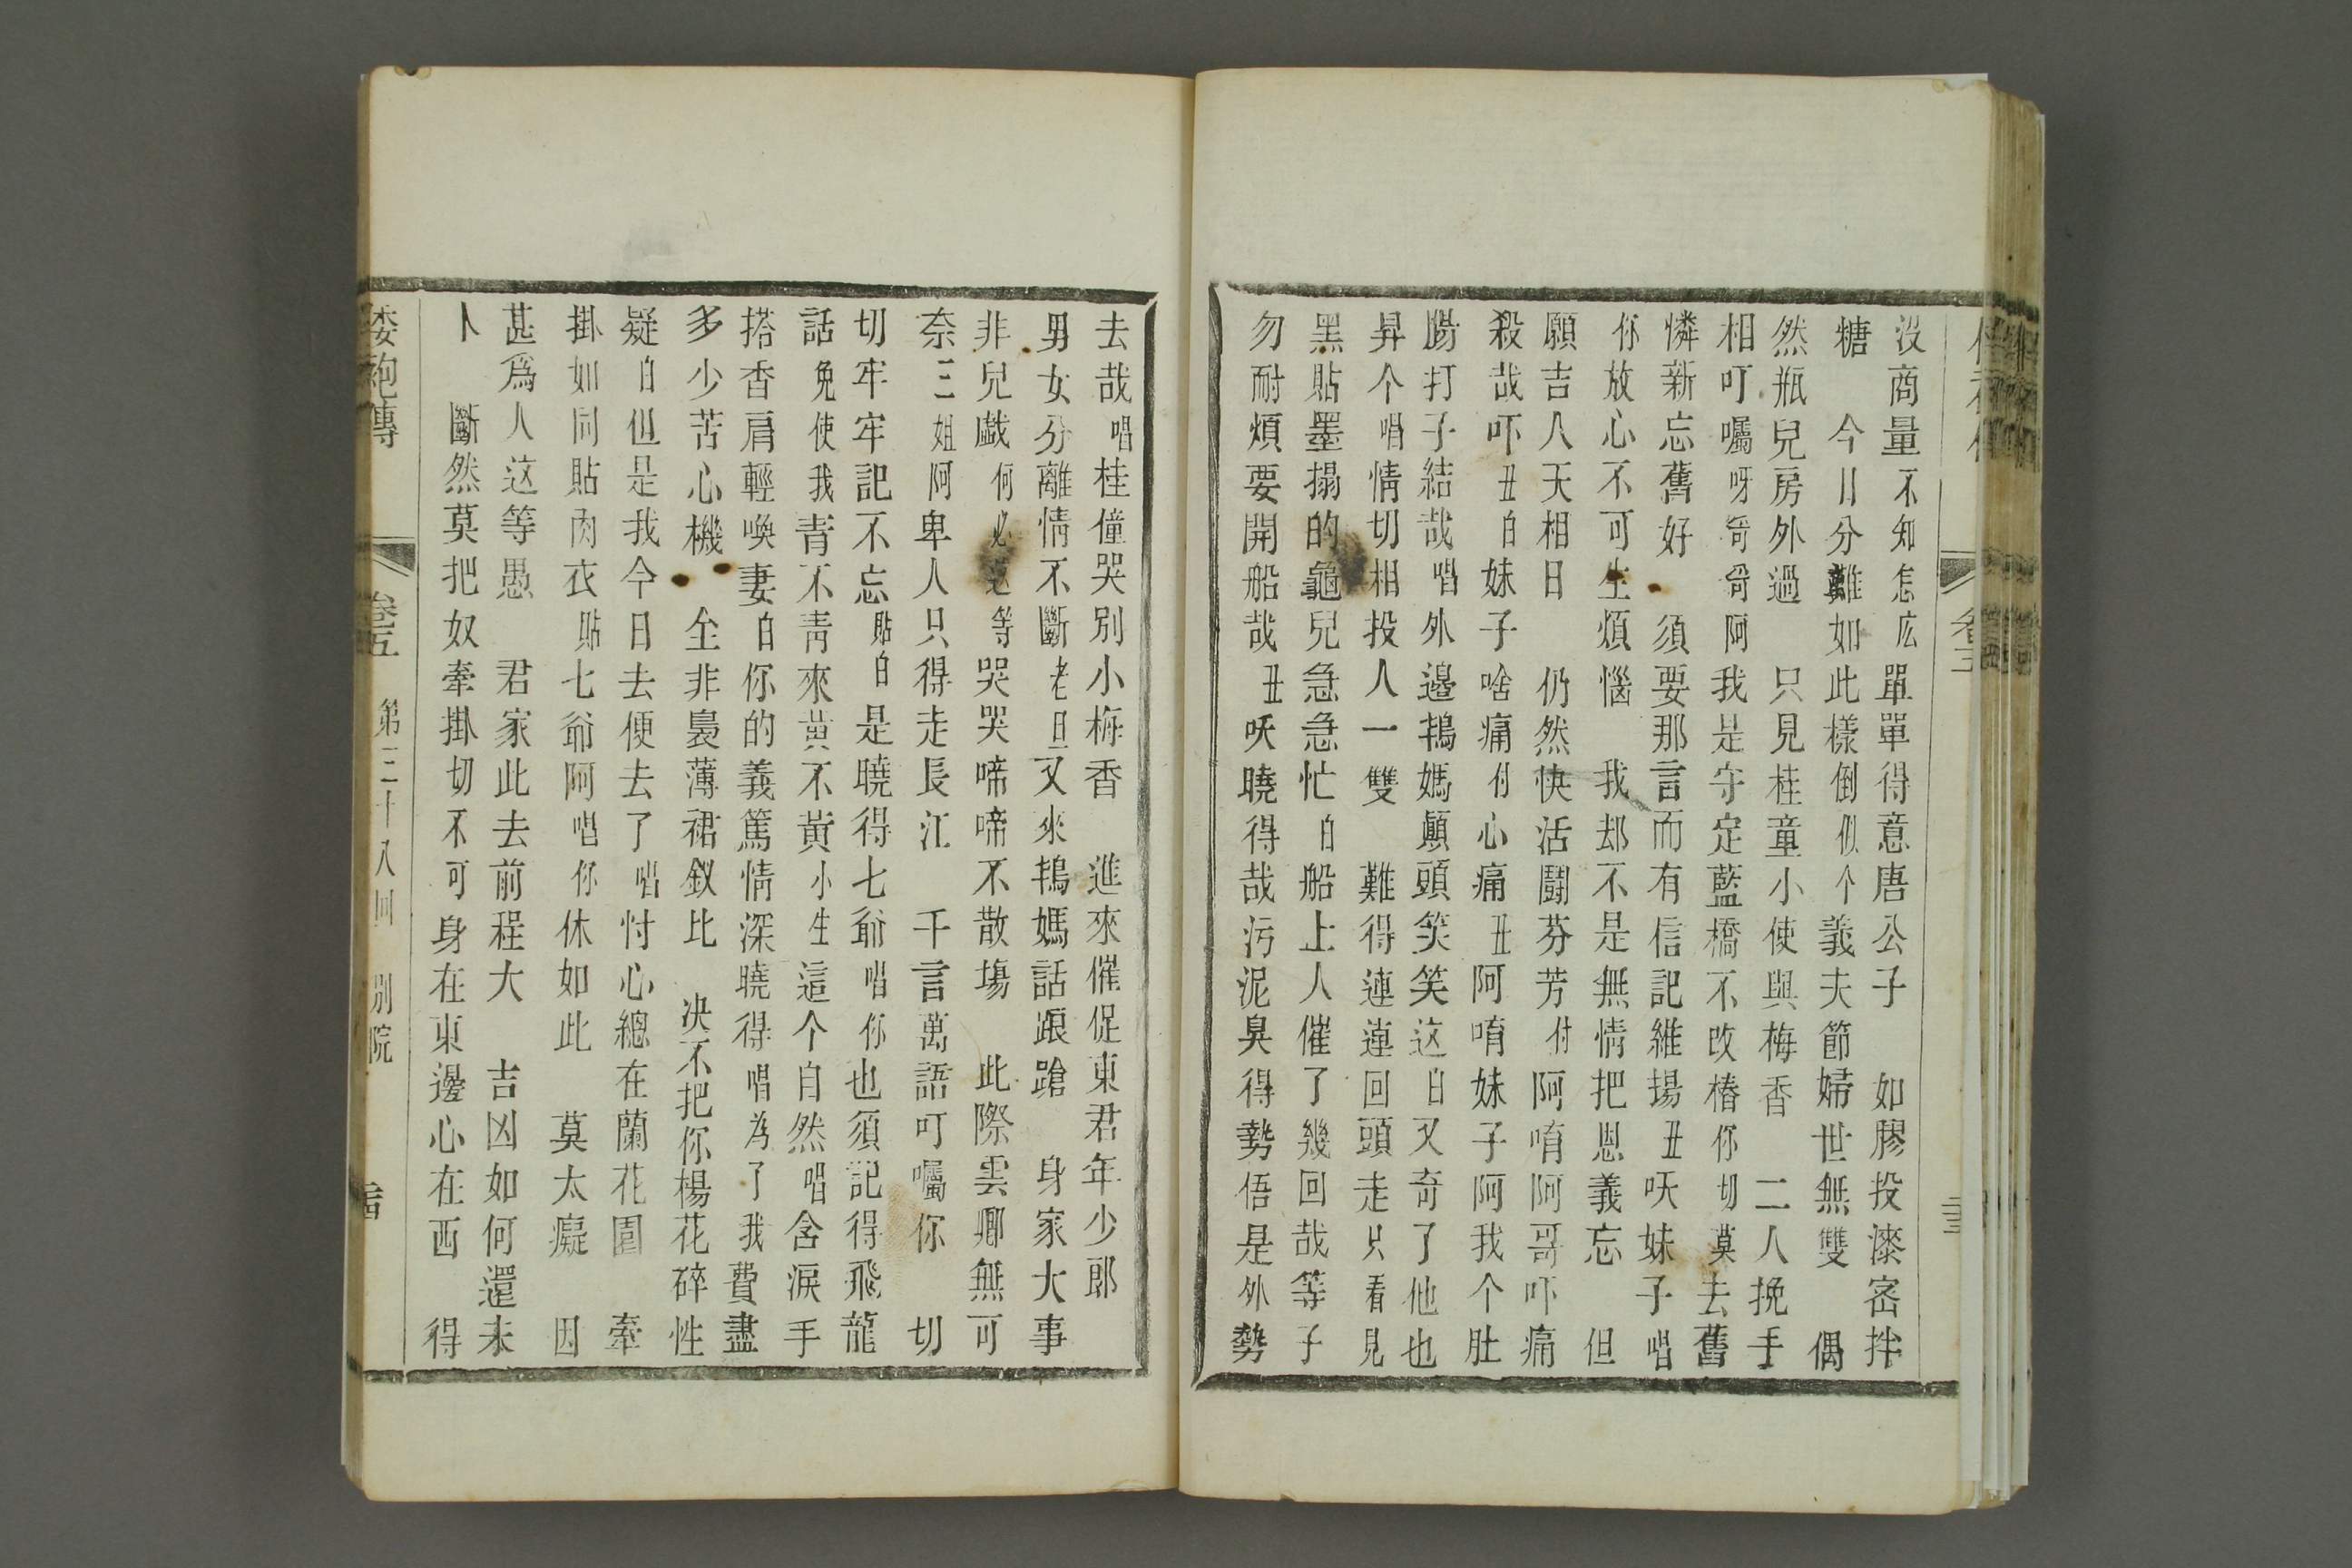 沒商量不知怎庅單單得意唐公子　如膠投漆宻拌
糖　今日分離如此樣倒似个義夫節婦世無雙　偶
然瓶兒房外過　只見桂童小使與梅香　二人挽手
相叮囑呀哥哥阿我是守定藍橋不改樁你切莫去舊
憐新忘舊好　須要那言而有信記維揚丑呅妹子唱
你放心不可生煩惱　我却不是無情把恩義忘　但
願吉人天相日　仍然快活鬪芬芳付阿唷阿哥吓痛
殺哉吓丑白妹子啥痛付心痛丑阿唷妹子阿我个肚
腸打子結哉唱外邊鴇媽顛頭笑笑这白又奇了他也
昇个唱情切相投人一雙　難得連連回頭走只看見
黑貼墨搨的龜兒急急忙白船上人催了幾回哉等子
勿耐煩要開船哉丑呅曉得哉污泥臭得勢俉是外勢
去哉唱桂僮哭別小梅香　進來催促東君年少郎
男女分離情不斷老旦又來鴇媽話踉蹌　身家大事
非兒戲何必這等哭哭啼啼不散塲　此際雲卿無可
奈三姐阿卑人只得走長江　千言萬語叮囑你　切
切牢牢記不忘貼白是曉得七爺唱你也須記得飛龍
話免使我青不青來黄不黄小生這个自然唱含淚手
搭香肩輕喚妻白你的義篤情深曉得唱為了我費盡
多少苦心機　全非裊薄裙釵比　决不把你楊花碎性
疑白但是我今日去便去了唱忖心總在蘭花園　牽
掛如同貼肉衣貼七爺阿唱你休如此　莫太癡　因
甚爲人这等愚　君家此去前程大　吉凶如何還未
卜　斷然莫把奴牽掛切不可身在東邊心在西　得
倭袍傳　卷五　第三十八回　別院